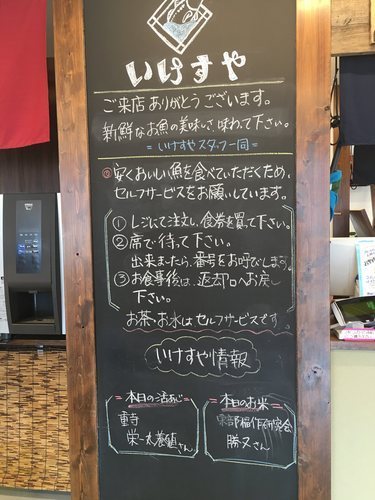 いけすや
ご来店ありがとうございます。
新鮮なお魚の美味しさ味わって下さい。
=いけすやスタッフ一同=
◎安くおいしい魚を食べていただくため、
セルフサービスをお願いしています。
①レジにて注文し、食券を買って下さい。
②席で待って下さい。
出来ましたら、番号をお呼びします。
③お食事後は、返却口へお戻し
下さい。
お茶・お水はセルフサービスです。
いけすや情報
=本日の活あじ=
重寺
栄一太養殖さん
=本日のお米=
東部稲作研究会
勝又さん